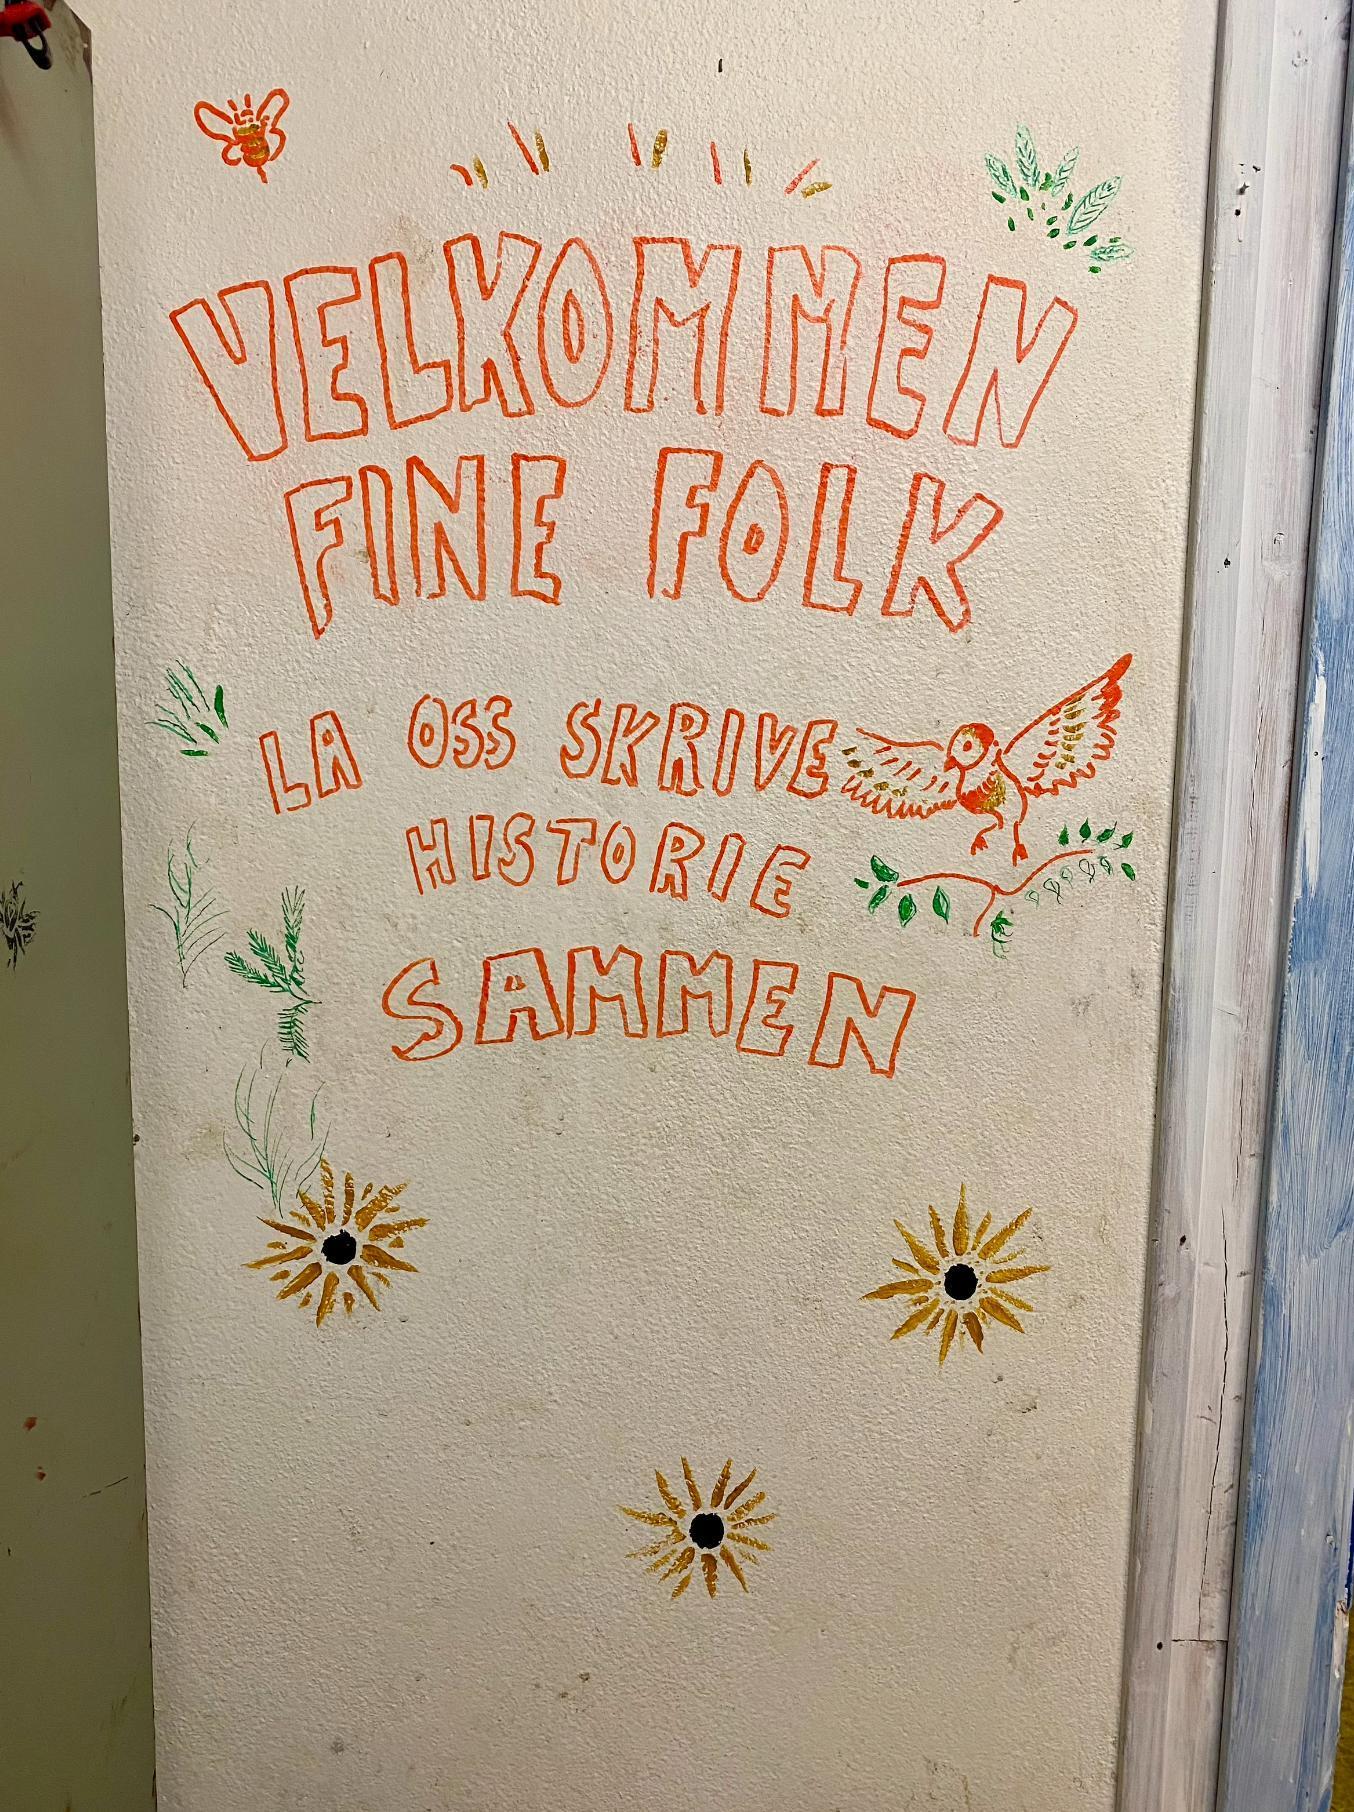 VELKOMMEN
FINE FOLK
LA OSS SKRIVE
HISTORIE
SAMMEN